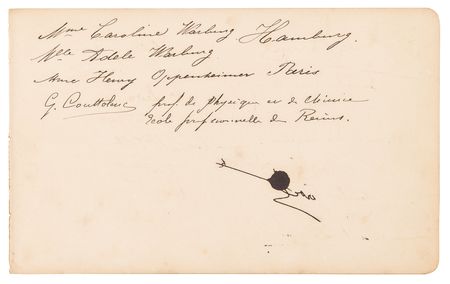 Mme Caroline Warburg Hamburg.
Mlle Adele Warburg
Mme Henry Oppenheimer Paris
G. Couttolenc prof. de Physique et de Chimie
Ecole professionnelle de Reims.